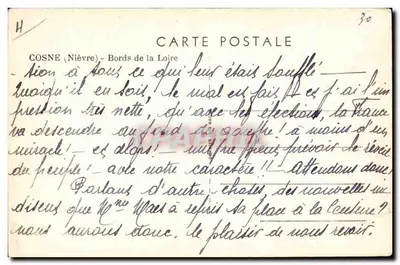 H
30
CARTE POSTALE
COSNE (Nièvre) - Bords de la Loire
-sion à tous ce qui leur était soufflé —
Quoiqu'il en soit, le mal est fait — et j'ai l'im
pression très nette, qu'avec les élections, la France
va descendre au fond du gouffre! à moins d'un
miracle! — et alors! — peut prévoir le réveil
du peuple! — avec notre caractère!! — Attendons donc!
Parlons d'autres choses, des nouvelles me
disent que Mme Maes a repris sa place à la Couture?
nous aurons donc le plaisir de nous revoir.